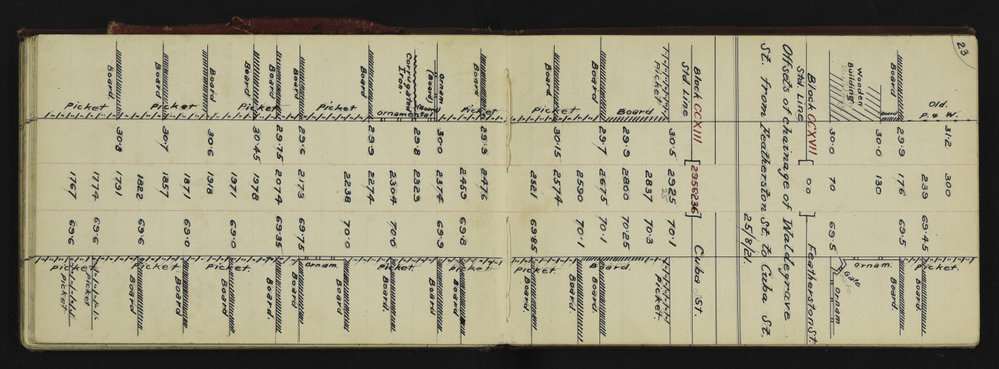 23
Old.
P. & W. 31.2 300
239 69.45 Picket.
Board 29.9 176 69.5 Board.
Board
30.0 130
Wooden
Building
ornam.
Gate
30.0 70 69.5 ornam
Block CCXVII
Std. Line [ 0.0 ] Featherston St.
Offsets of chainage of Waldegrave
St. from Featherston St. to Cuba St.
25/8/21.
Block CCXIII
Std Line [2958236] Cuba St.
Picket 30.5 2925 70.1 Picket.
2837 70.3
Board 29.9 2800 70.25 Board.
Board 29.7 2675 70.1 Board.
2590 70.1 Board.
Picket
Board 30.15 2574
2521 69.85 Picket.
Board 29.8 2476
Picket 2459 69.8 Picket. Board.
ornam.
30.0 2374 69.9 Board.
Corrugated
Iron 29.8 2323
ornamental 2304 70.0 Picket. Board.
Board 29.9 2274
Picket 2238 70.0 Board.
ornam.
Board 29.6 2173 69.75 Board.
Board 29.75 2074 69.35 Board.
Board 30.45 1978
Picket 1971 69.0 Board.
Picket.
Board 30.6 1918
1871 69.0 Board.
Picket
Board 30.7 1857
1822 69.6 Board.
Picket
Board 30.8 1791
Picket 1774 69.6 Picket
1767 69.6 Picket
Picket.